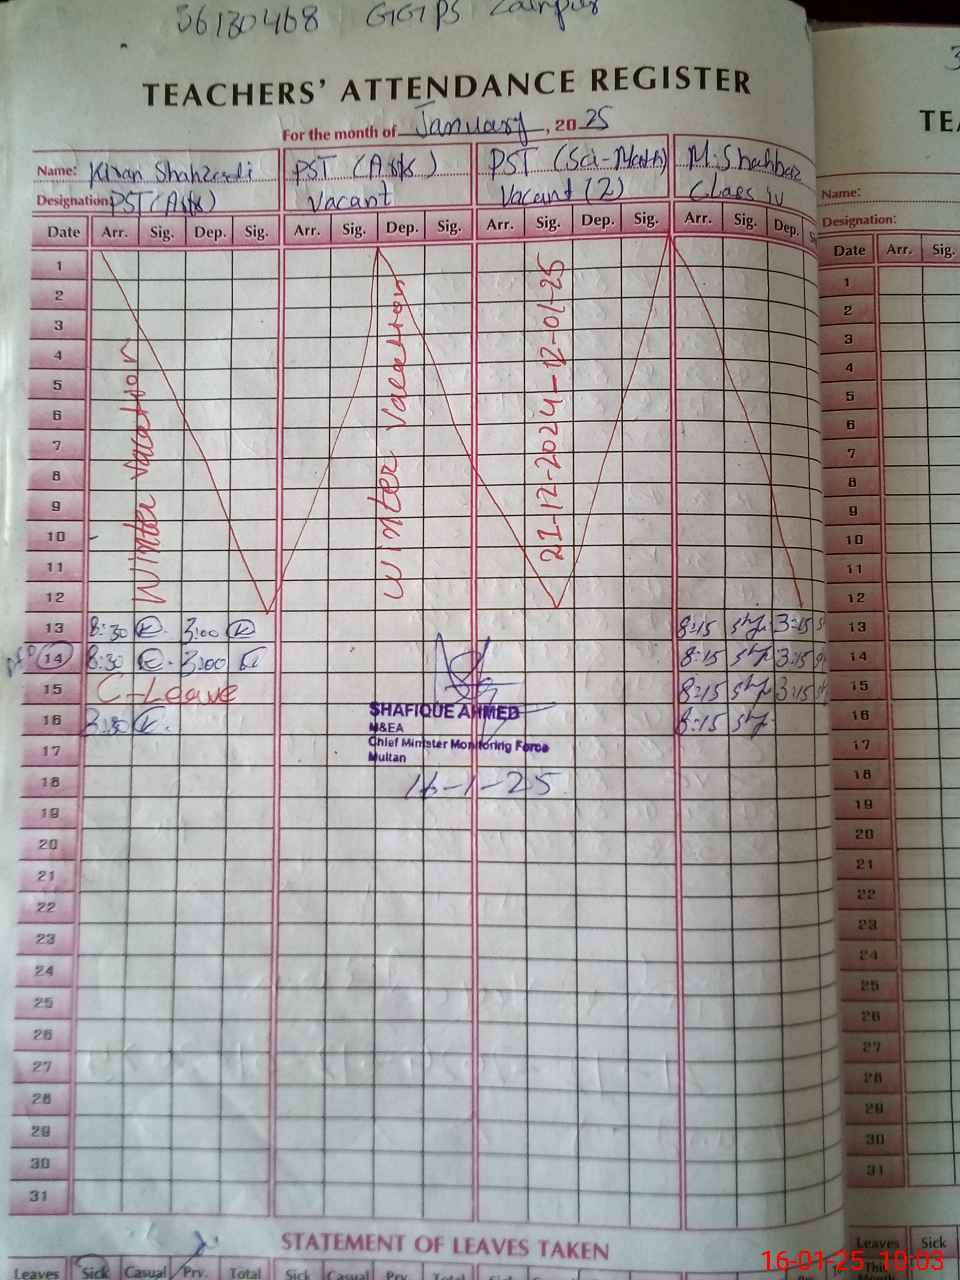 36130468 GGPS
TEACHERS' ATTENDANCE REGISTER
For the month of January, 2025
Name: Kiran Shahzadi PST (Arts) PST (Sci-Math) M. Shahbaz
Designation: PST (Arts) Vacant Vacant (2) Class iv
Date Arr. Sig. Dep. Sig. Arr. Sig. Dep. Sig. Arr. Sig. Dep. Sig. Arr. Sig. Dep.
1
2
3
4
5
6
7
8
9
10
11
12
Winter Vacation
Winter Vacation
21-12-2024-12-01-25
13 8:30 3:00 8:15 3:15
14 8:30 3:00 8:15 3:15
15 C-Leave 8:15 3:15
16 8:30 8:15
SHAFIQUE AHMED
M&EA
Chief Minister Monitoring Force
Multan
16-1-25
17
18
19
20
21
22
23
24
25
26
27
28
29
30
31
STATEMENT OF LEAVES TAKEN
Leaves Sick Casual Prv. Total Sick Casual Prv. Total Sick Casual
TE
Name:
Designation:
Date Arr. Sig.
1
2
3
4
5
6
7
8
9
10
11
12
13
14
15
16
17
18
19
20
21
22
23
24
25
26
27
28
29
30
31
Leaves Sick
This
16-01-25 10:03